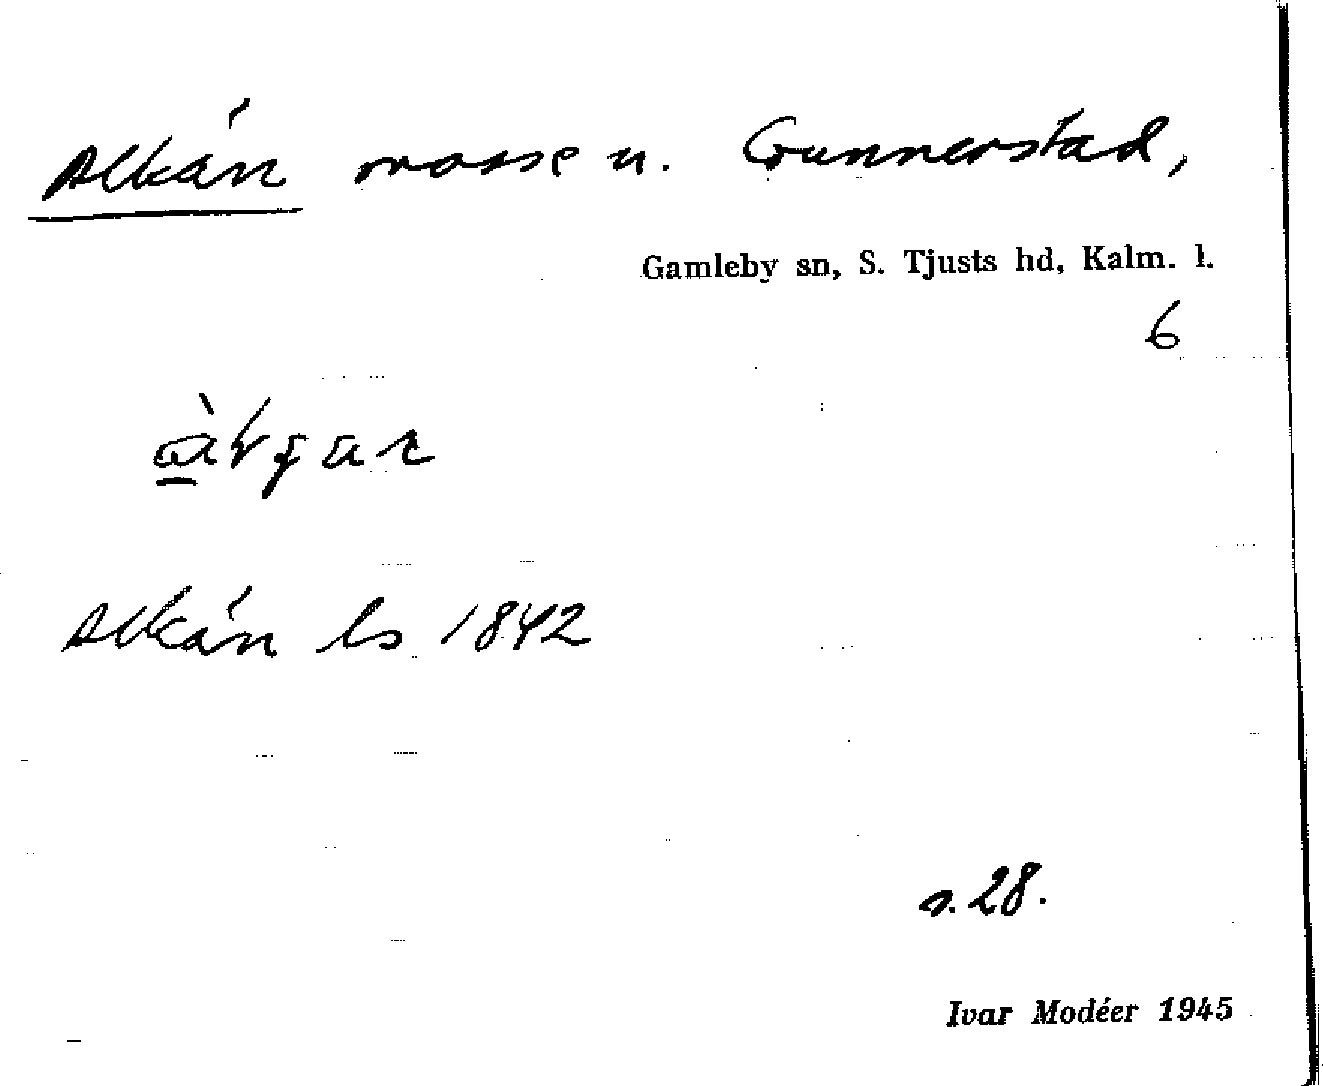 Alkán mosse u. Gunnerstad,
Gamleby sn, S. Tjusts hd, Kalm. l.
6
Alkán ls 1842
s. 28.
Ivar Modéer 1945